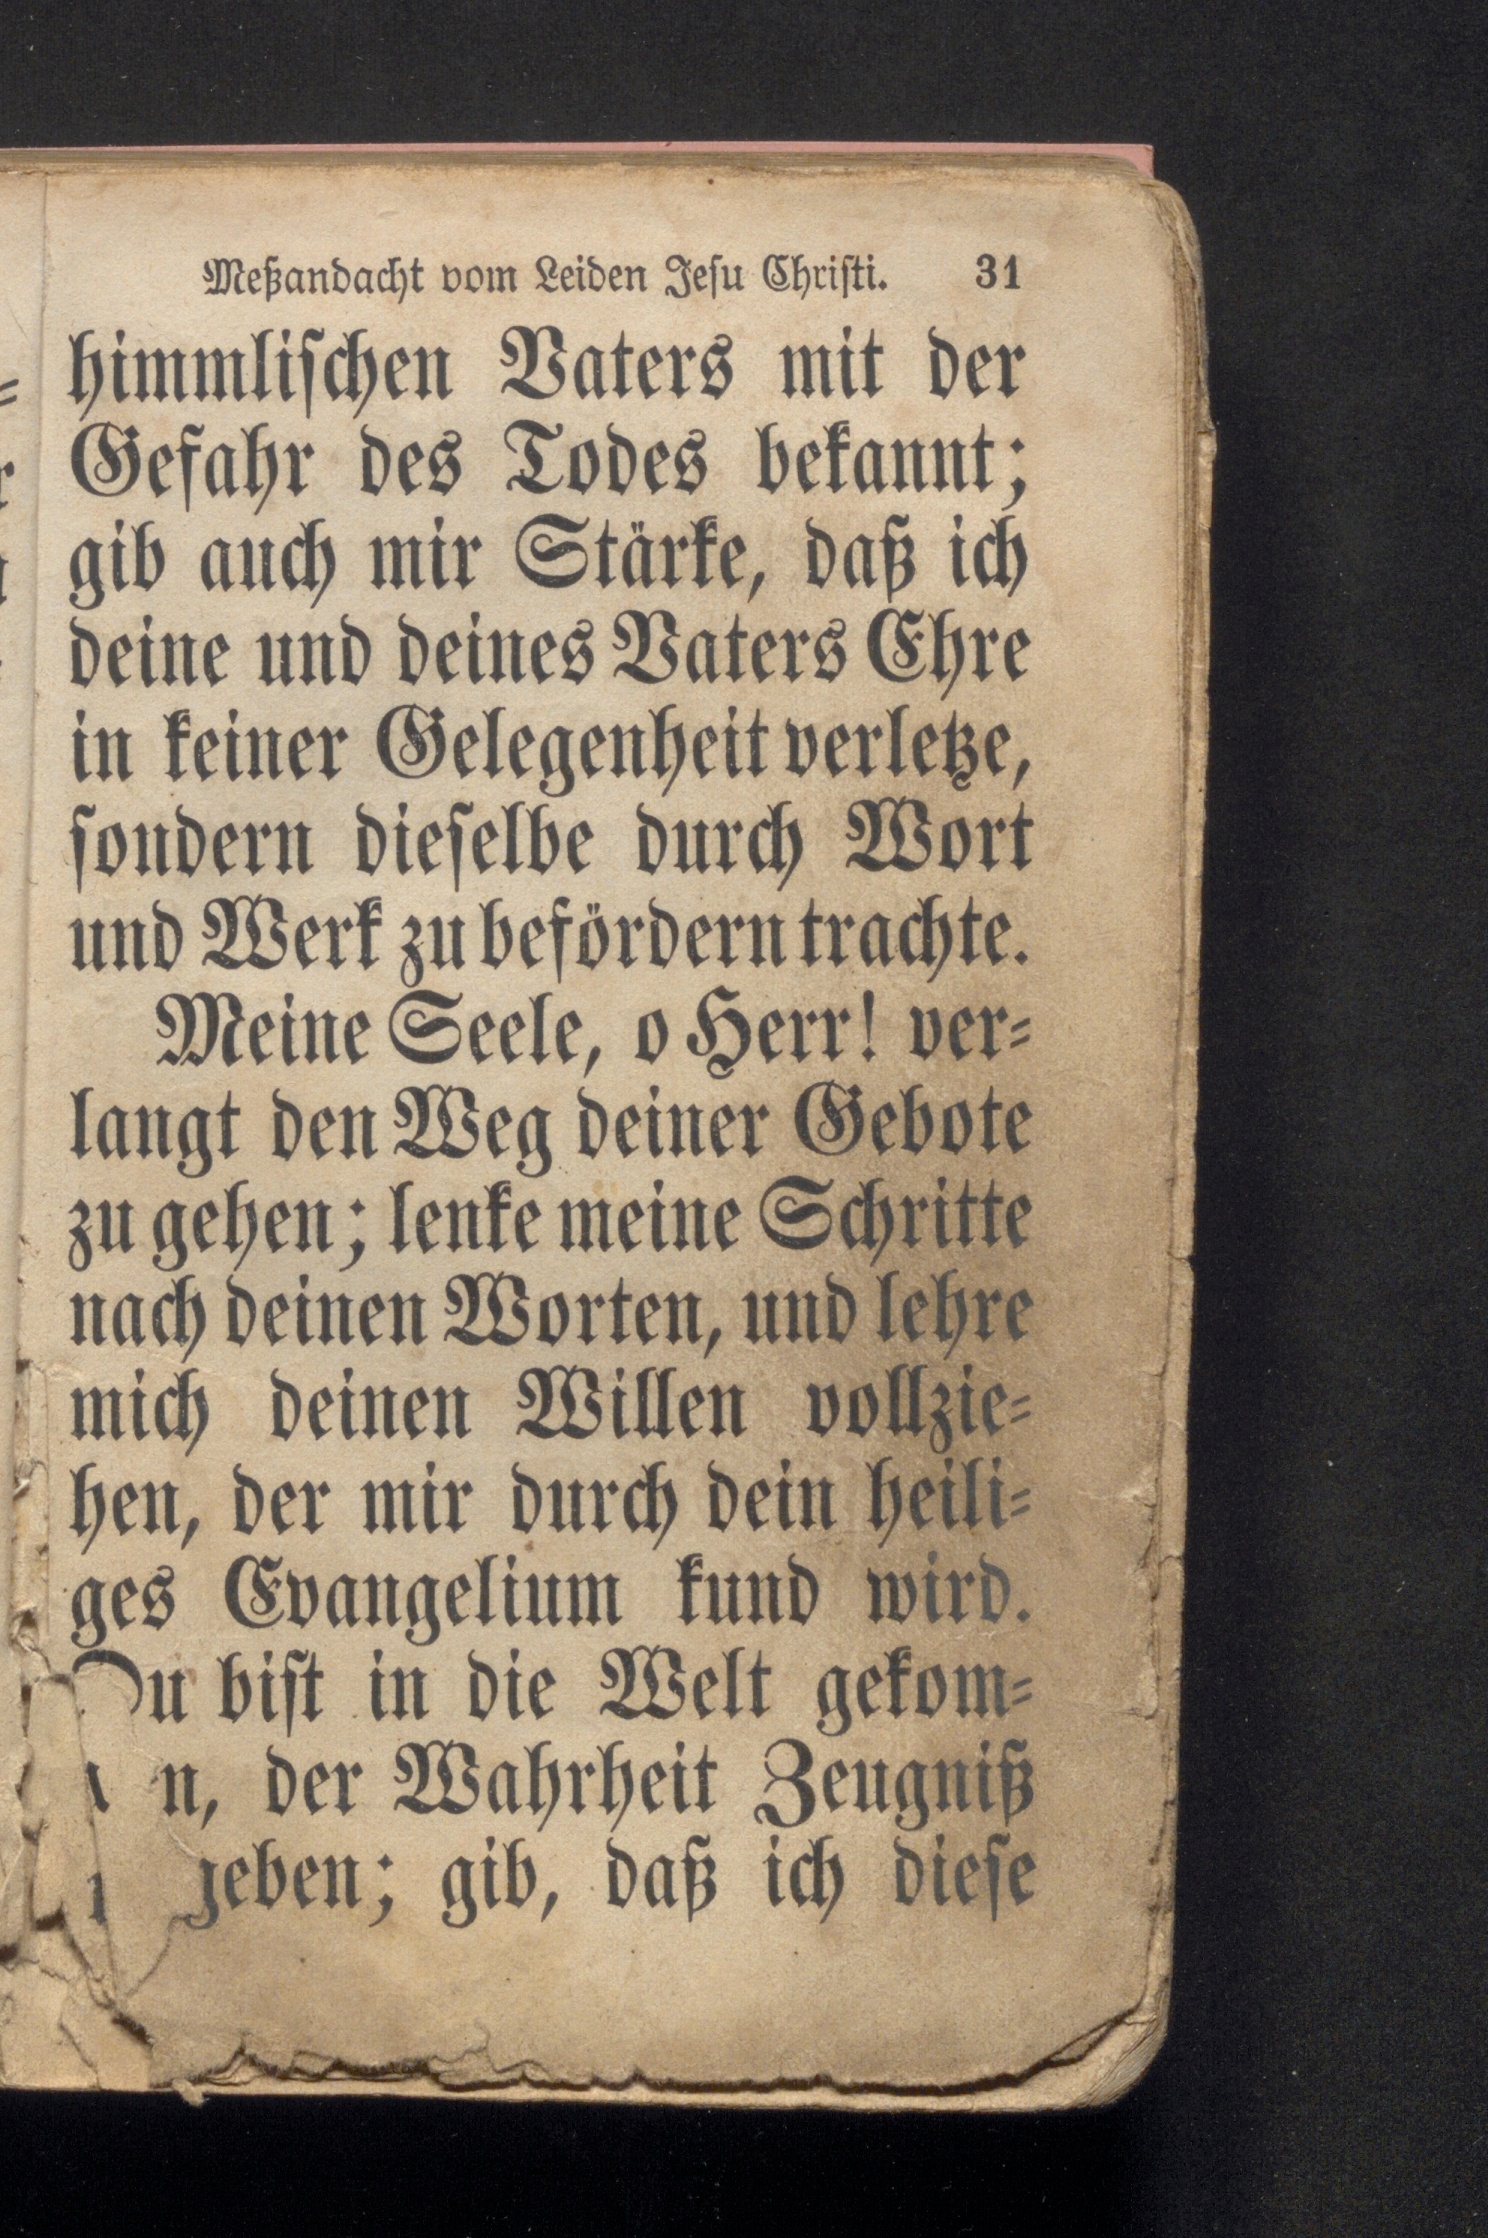 Meßandacht vom Leiden Jesu Christi. 31
himmlischen Vaters mit der
Gefahr des Todes bekannt;
gib auch mir Stärke, daß ich
deine und deines Vaters Ehre
in keiner Gelegenheit verletze,
sondern dieselbe durch Wort
und Werk zu befördern trachte.
Meine Seele, o Herr! ver-
langt den Weg deiner Gebote
zu gehen; lenke meine Schritte
nach deinen Worten, und lehre
mich deinen Willen vollzie-
hen, der mir durch dein heili-
ges Evangelium kund wird.
Du bist in die Welt gekom-
n, der Wahrheit Zeugniß
geben; gib, daß ich diese